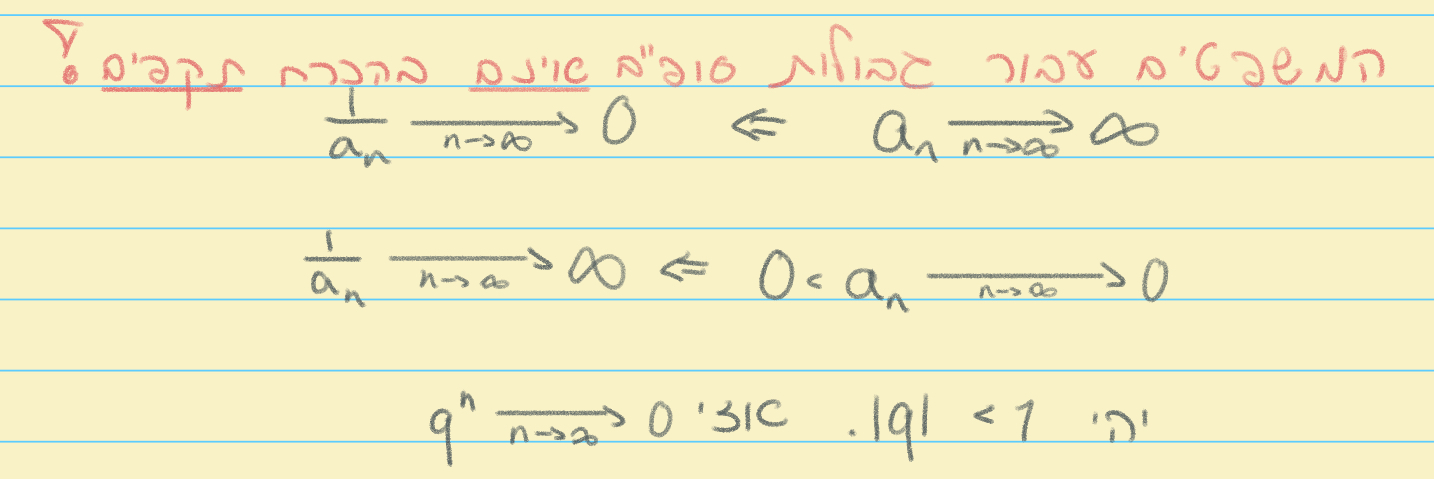 המשפטים עבור גבולות סופ"ים אינם בהכרח תקפים!
a_n →_{n→∞} ∞ ⇐ 1/a_n →_{n→∞} 0
0 < a_n →_{n→∞} 0 ⇐ 1/a_n →_{n→∞} ∞
יהי |q| < 1. אזי q^n →_{n→∞} 0